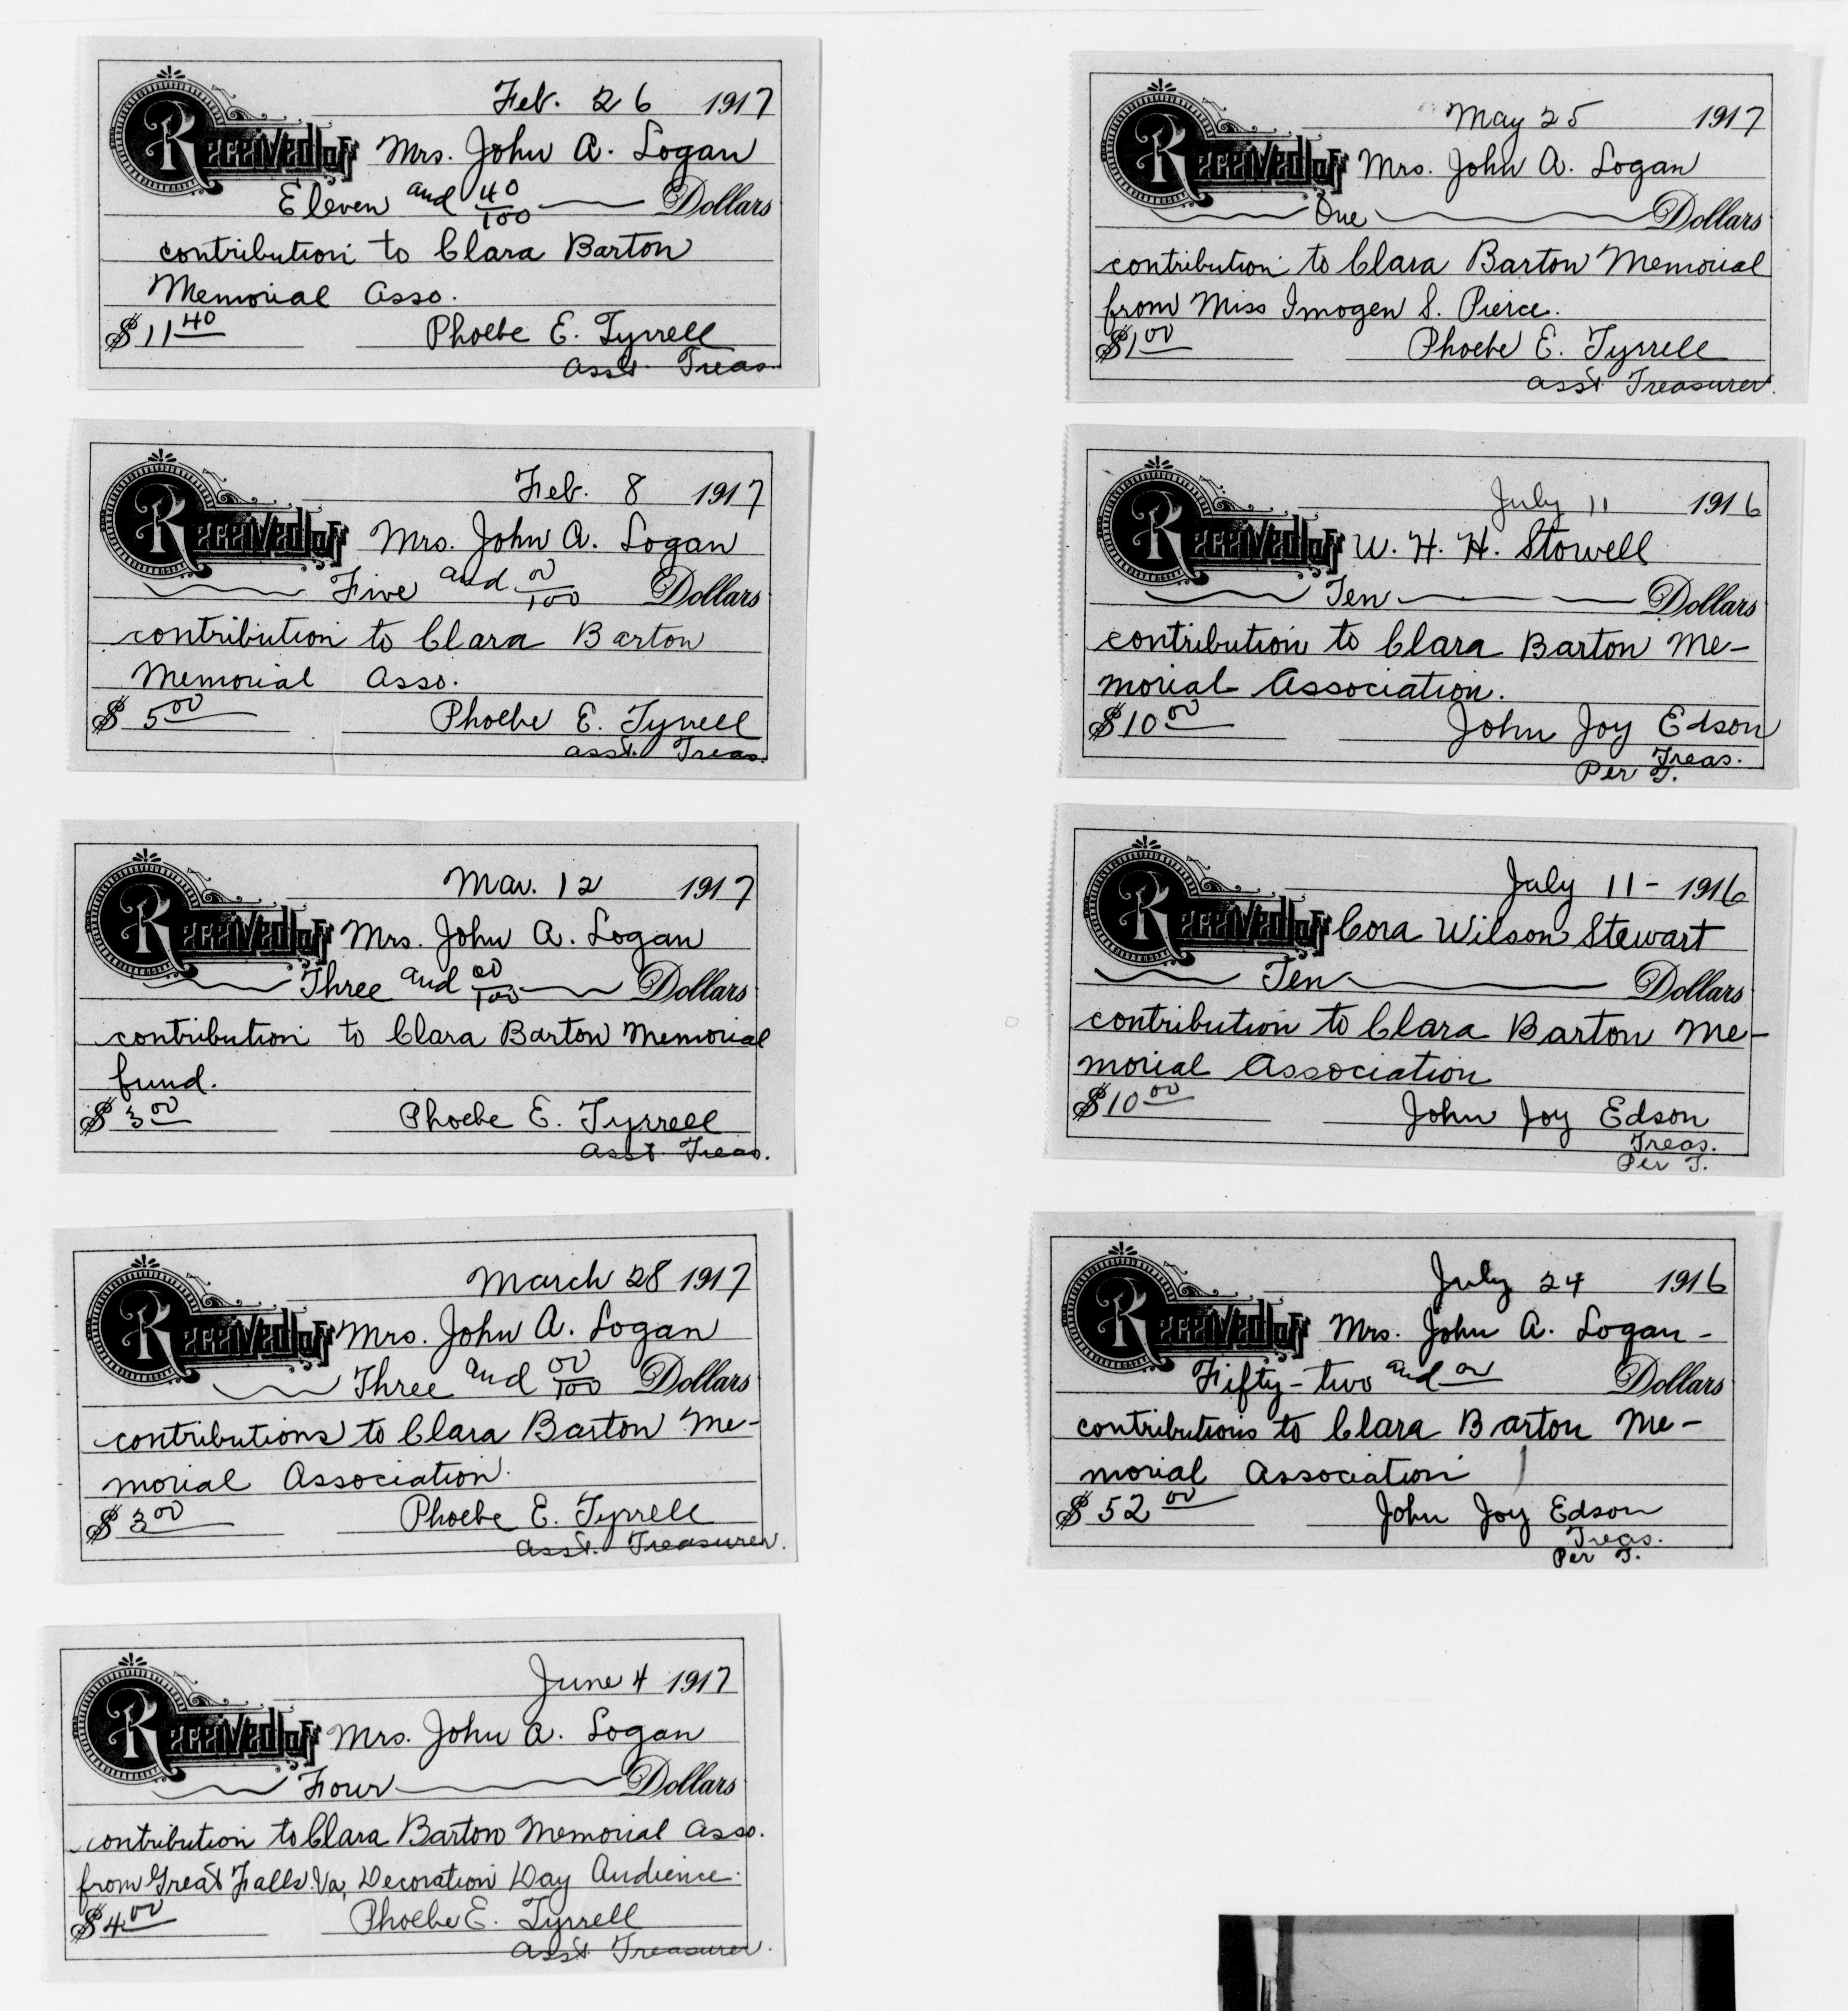 Feb. 26 1917
Received of Mrs. John A. Logan
Eleven and 40/100 Dollars
contribution to Clara Barton
Memorial Asso.
$ 11 40 Phoebe E. Tyrrell
Asst. Treas.
Feb. 8 1917
Received of Mrs. John A. Logan
Five and 00/100 Dollars
contribution to Clara Barton
Memorial Asso.
$ 5 00 Phoebe E. Tyrrell
Asst. Treas.
Mar. 12 1917
Received of Mrs. John A. Logan
Three and 00/100 Dollars
contribution to Clara Barton Memorial
fund.
$ 3 00 Phoebe E. Tyrrell
Asst. Treas.
March 28 1917
Received of Mrs. John A. Logan
Three and 00/100 Dollars
contributions to Clara Barton Me-
morial Association.
$ 3 00 Phoebe E. Tyrrell
Asst. Treasurer.
June 4 1917
Received of Mrs. John A. Logan
Four Dollars
contribution to Clara Barton Memorial Asso.
from Great Falls Va, Decoration Day Audience.
$ 4 00 Phoebe E. Tyrrell
Asst Treasurer.
May 25 1917
Received of Mrs. John A. Logan
One Dollars
contribution to Clara Barton Memorial
from Miss Imogen S. Pierce.
$ 1 00 Phoebe E. Tyrrell
Asst Treasurer.
July 11 1916
Received of W. H. H. Stowell
Ten Dollars
contribution to Clara Barton Me-
morial Association.
$ 10 00 John Joy Edson
Treas.
Per T.
July 11 - 1916
Received of Cora Wilson Stewart
Ten Dollars
contribution to Clara Barton Me-
morial Association
$ 10 00 John Joy Edson
Treas.
Per T.
July 24 1916
Received of Mrs. John A. Logan -
Fifty-two and 00 Dollars
contributions to Clara Barton Me-
morial Association
$ 52 00 John Joy Edson
Treas.
Per T.